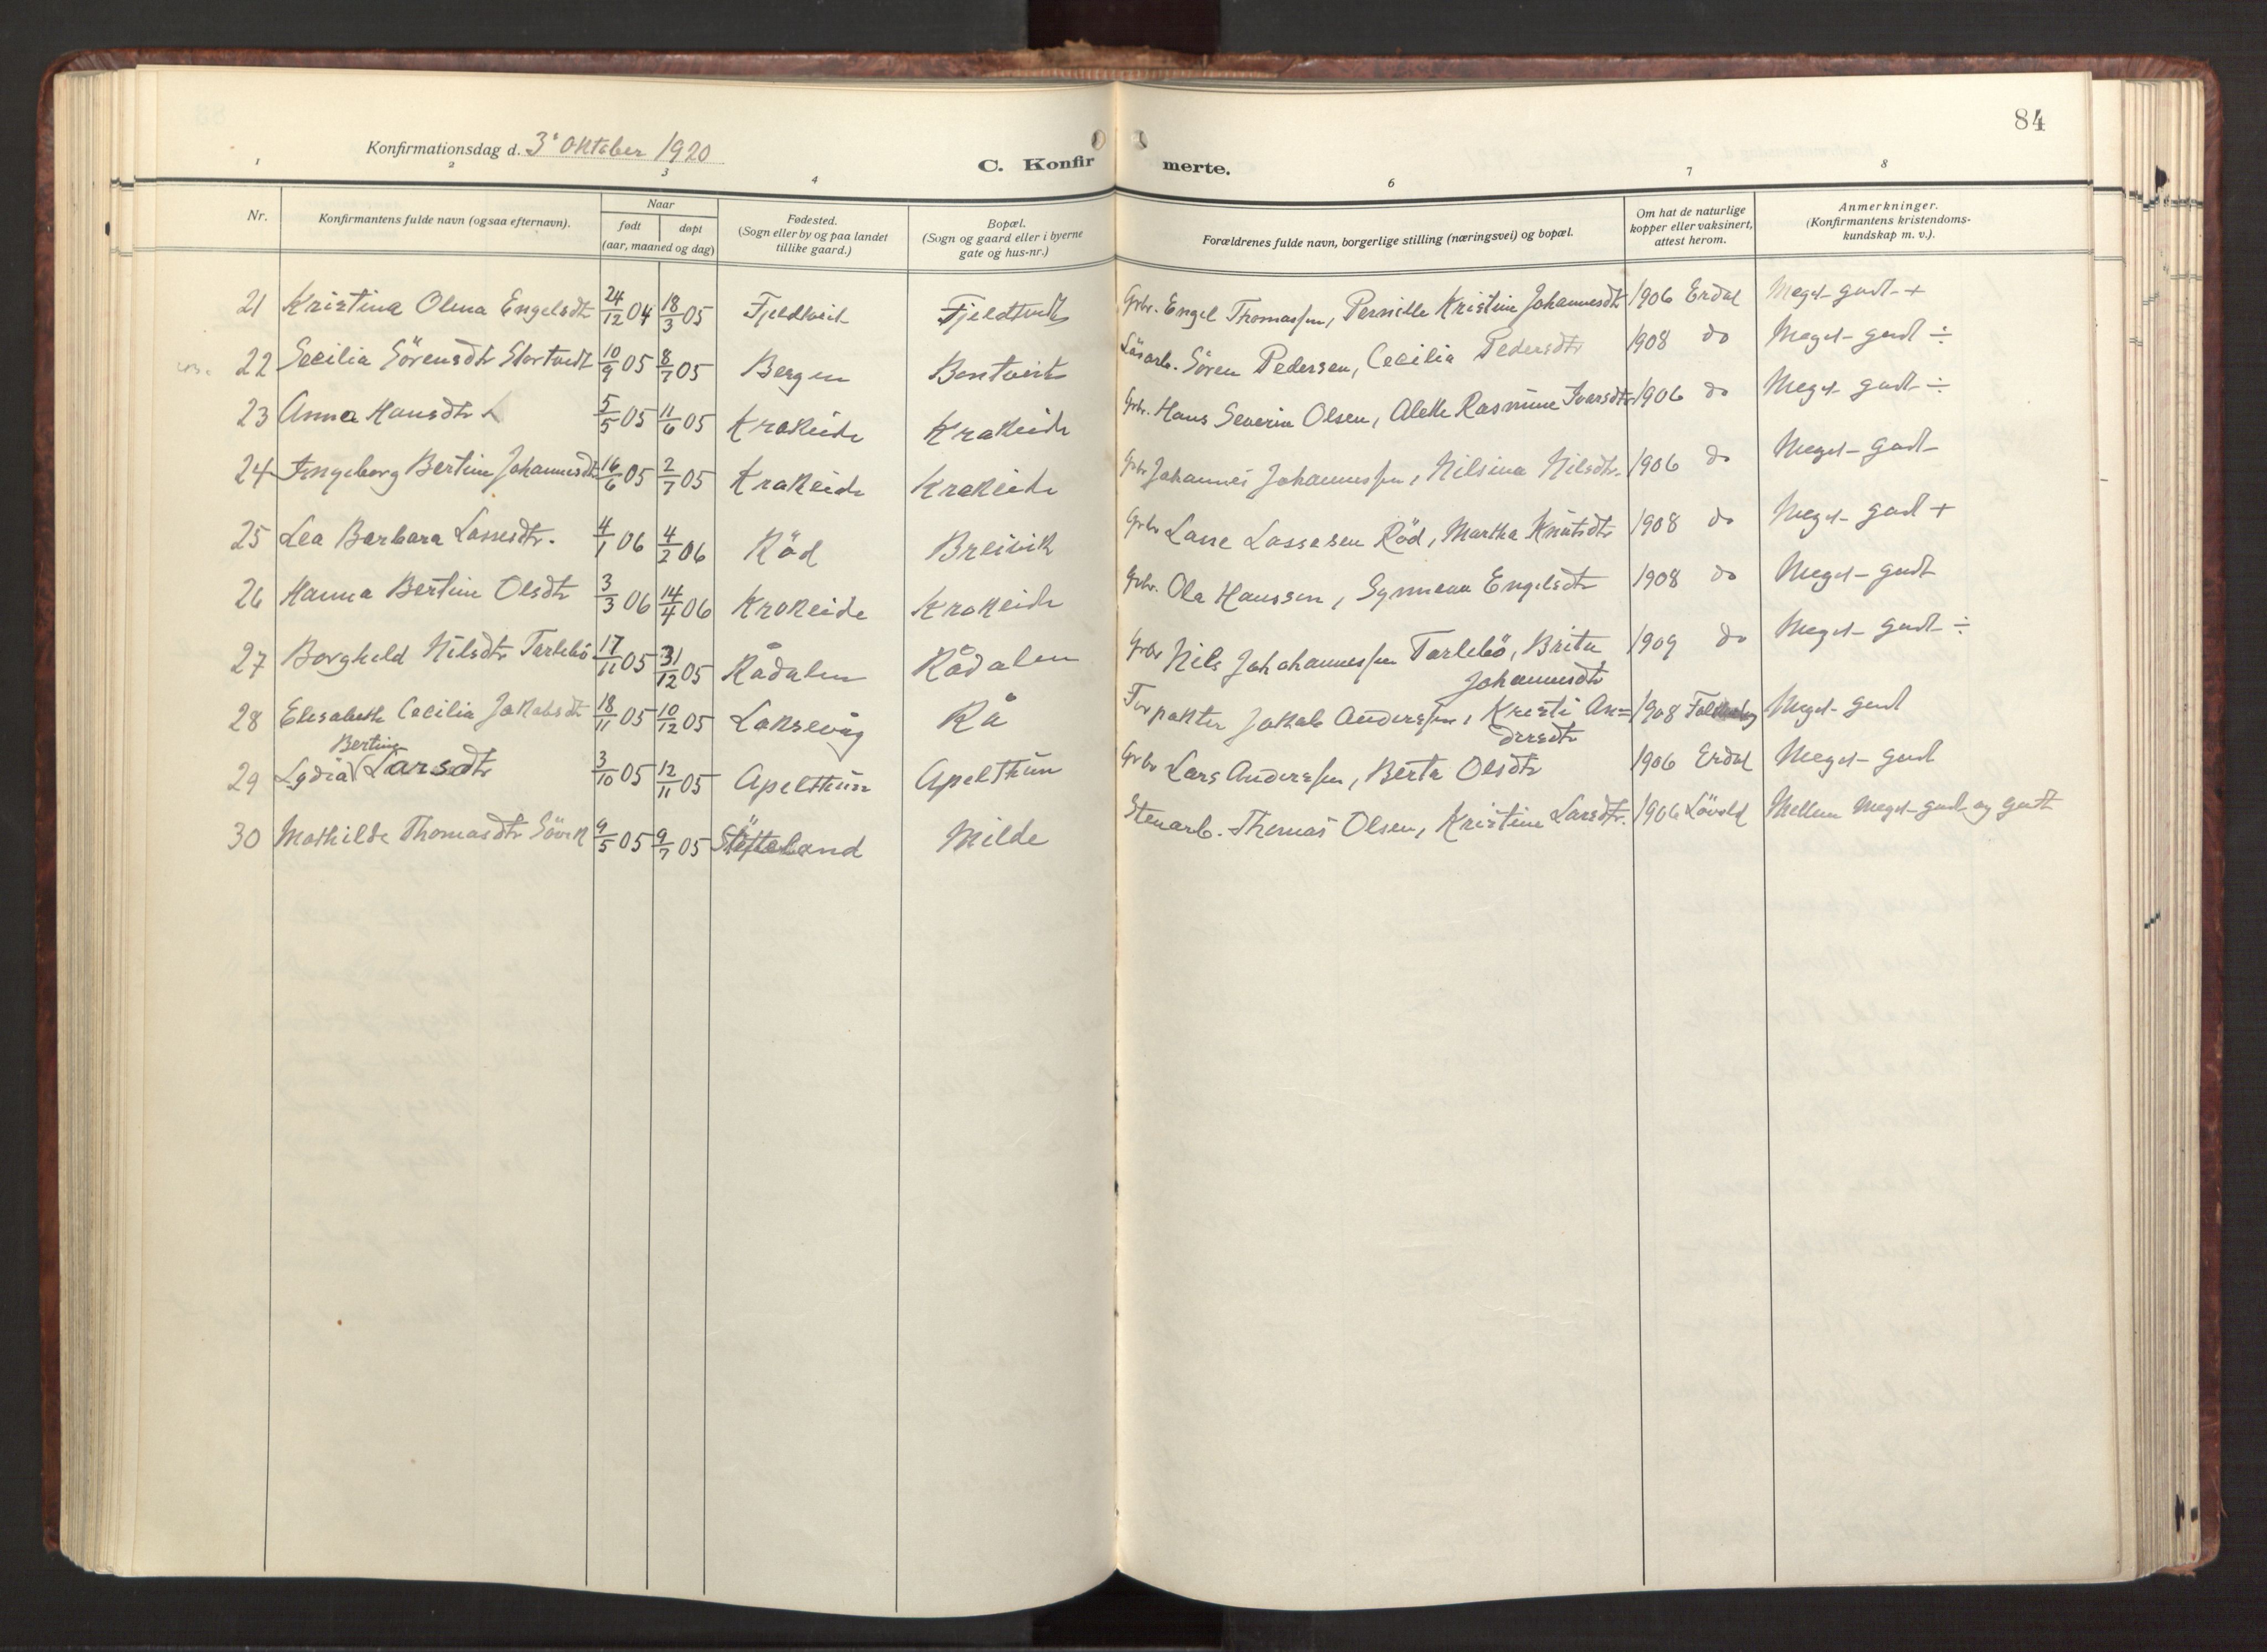 84
Konfirmationsdag d. 3' Oktober 1920
C. Konfirmerte.
1 2 3 4 6 7 8
Nr.
Konfirmantens fulde navn (ogsaa efternavn).
Naar
født døpt
(aar, maaned og dag)
Fødested.
(Sogn eller by og paa landet
tillike gaard.)
Bopæl.
(Sogn og gaard eller i byerne
gate og hus-nr.)
Forældrenes fulde navn, borgerlige stilling (næringsvei) og bopæl.
Om hat de naturlige
kopper eller vaksinert,
attest herom.
Anmerkninger.
(Konfirmantens kristendoms-
kundskap m. v.).
21 Kristina Olina Engelsdtr 24/12 04 18/3 05 Fjeldtveit Fjeldtveit Gbr. Engel Thomassen, Pernille Kristine Johannesdtr 1906 Erdal Meget godt +
22 Secilia Sörensdtr Stortveit 10/9 05 8/7 05 Bergen Bontveit Lösarb. Sören Pedersen, Cecilia Pedersdtr 1908 do Meget godt ÷
23 Anna Hansdtr 5/5 05 11/6 05 Krokeide Krokeide Gbr. Hans Severin Olsen, Alette Rasmine Ivarsdtr 1906 do Meget godt ÷
24 Ingeborg Bertine Johannesdtr 16/6 05 2/7 05 Krokeide Krokeide Gbr Johannes Johannessen, Nilsina Nilsdtr. 1906 do Meget godt
25 Lea Barbara Lassesdtr. 4/1 06 4/2 06 Röd Breivik Gbr Lasse Lassesen Röd, Martha Knutsdtr 1908 do Meget godt +
26 Hanna Bertine Olsdtr 3/3 06 14/4 06 Krokeide Krokeide Gbr. Ola Hanssen, Synneva Engelsdtr 1908 do Meget godt
27 Borghild Nilsdtr Tarlebö 17/11 05 31/12 05 Rådalen Rådalen Gbr Nils Johohannessen Tarlebö, Brita 1909 do Meget godt ÷
Johannesdtr
28 Elisabeth Cecilia Jakobsdt 18/11 05 10/12 05 Laksevåg Rå Forpakter Jakob Anderssen, Kristi An= 1908 Meget godt
dersdtr
Bertine
29 Lydia V Larsdtr 3/10 05 12/11 05 Apelthun Apelthun Gbr Lars Anderssen, Berta Olsdtr 1906 Erdal Meget godt
30 Mathilde Thomasdtr Sörvik 9/5 05 9/7 05 Milde Stenarb. Thomas Olsen, Kristine Larsdtr. 1906 Lövold Mellem Meget godt og godt